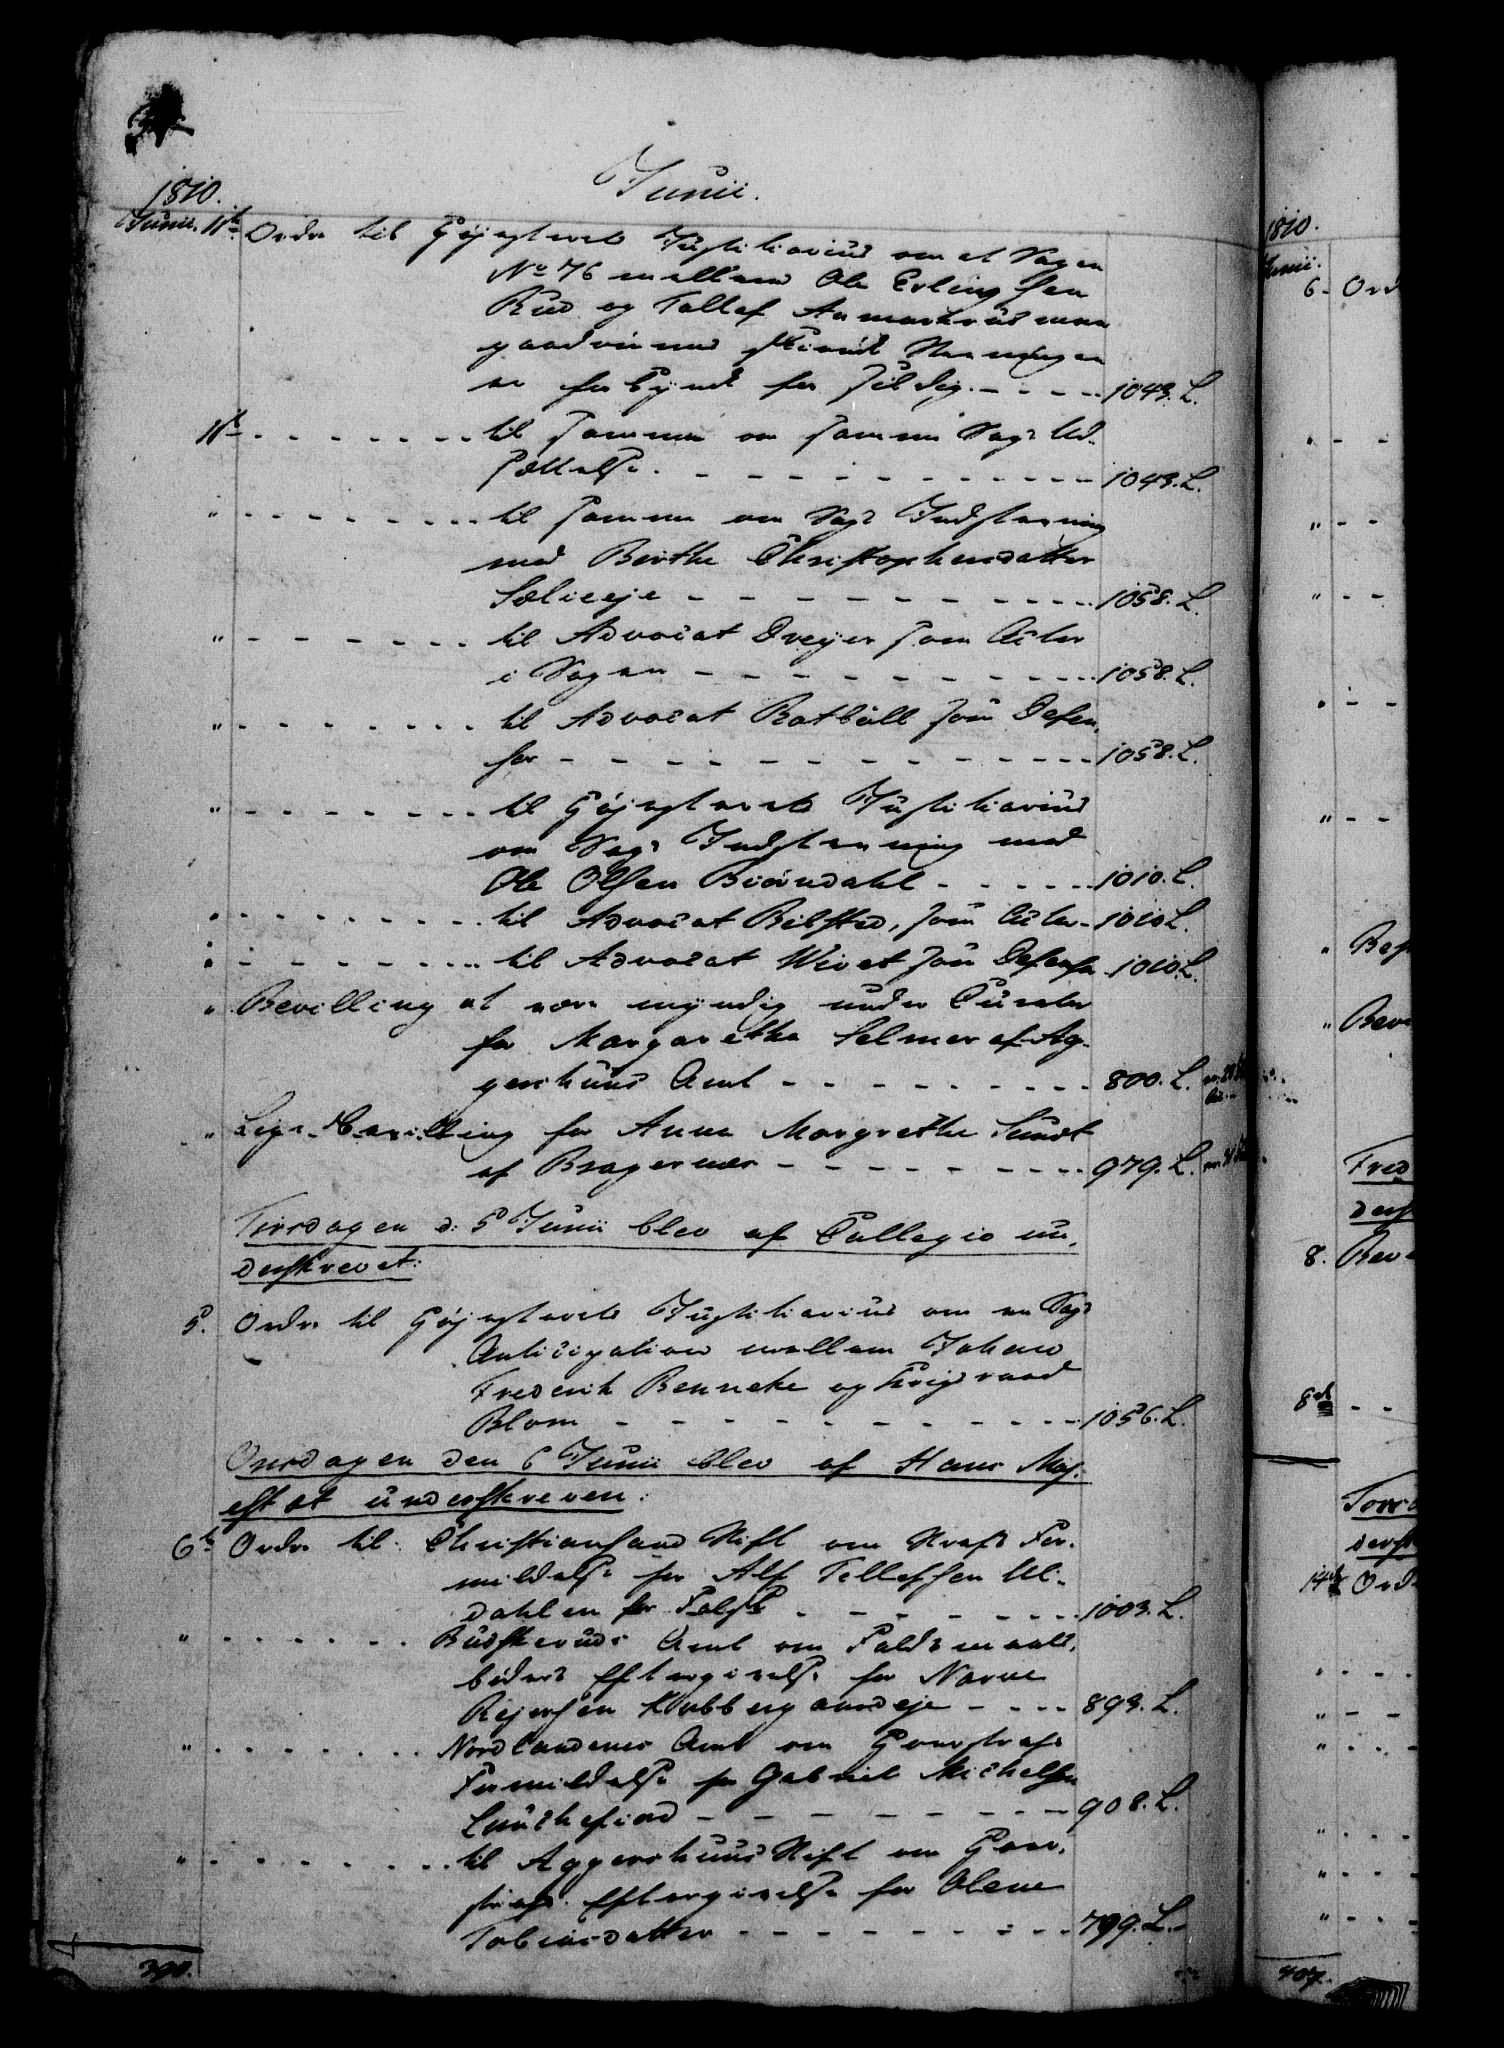 Junii.
1810.
Junii. 1ste Ordre til Høyesterets Justitiarius om at Sagen
No 76 mellem Ole Erlingsen
Rud og Tollef Aamarkrud maa
paadømmes skiøndt Stævningen
er forkyndt for sildig. 1043. L.
1ste til samme om samme Sags Ud-
sættelse. 1043. L.
" til samme om Sags Indstævning
med Berthe Christophersdatter
Solieeje 1058. L.
" til Advocat Dreyer som Actor
i Sagen 1058. L.
" til Advocat Rotbøll som Defen-
sor 1058. L.
" til Høyesterets Justitiarius
om Sags Indstævning med
Ole Olsen Biørndahl 1010. L.
" til Advocat Bilsted, som Actor 1010 L.
" til Advocat Wivet som Defensor 1010. L.
" Bevilling at være myndig under Curator
for Margaretha Selmer af Ag-
gershuus Amt 800. L.
" Lige Bevilling for Anna Margrethe Sundt
af Bragernæs 979. L.
Tirsdagen d: 5 Junii blev af Collegio un-
derskrevet:
5. Ordre til Høyesterets Justitiarius om en Sags
Anticipation mellem Johan
Frederik Benneke og Krigsraad
Blom 1056. L.
Onsdagen den 6 Junii blev af Hans Maj-
estæt underskreven:
6te Ordre til Christiansand Stift om Straf For-
mildelse for Alf Tellefsen Ul-
dahlen for Falsk 1003. L.
" Budskeruds Amt om Faldsmaals
bøders Eftergivelse for Narve
Rejersen Kobbergaardseje 893. L.
" Nordlandenes Amt om Hoerstrafs
Formildelse for Gabriel Michelsen
908. L.
" til Aggershuus Stift om Hoer-
strafs Eftergivelse for Olene
Tobiasdatter 799. L.
398.
1810.
Junii.
6 - Ord
"
Bev
Fred
ders
8. Bev
8de
Tors
ders
14de Ord
407.